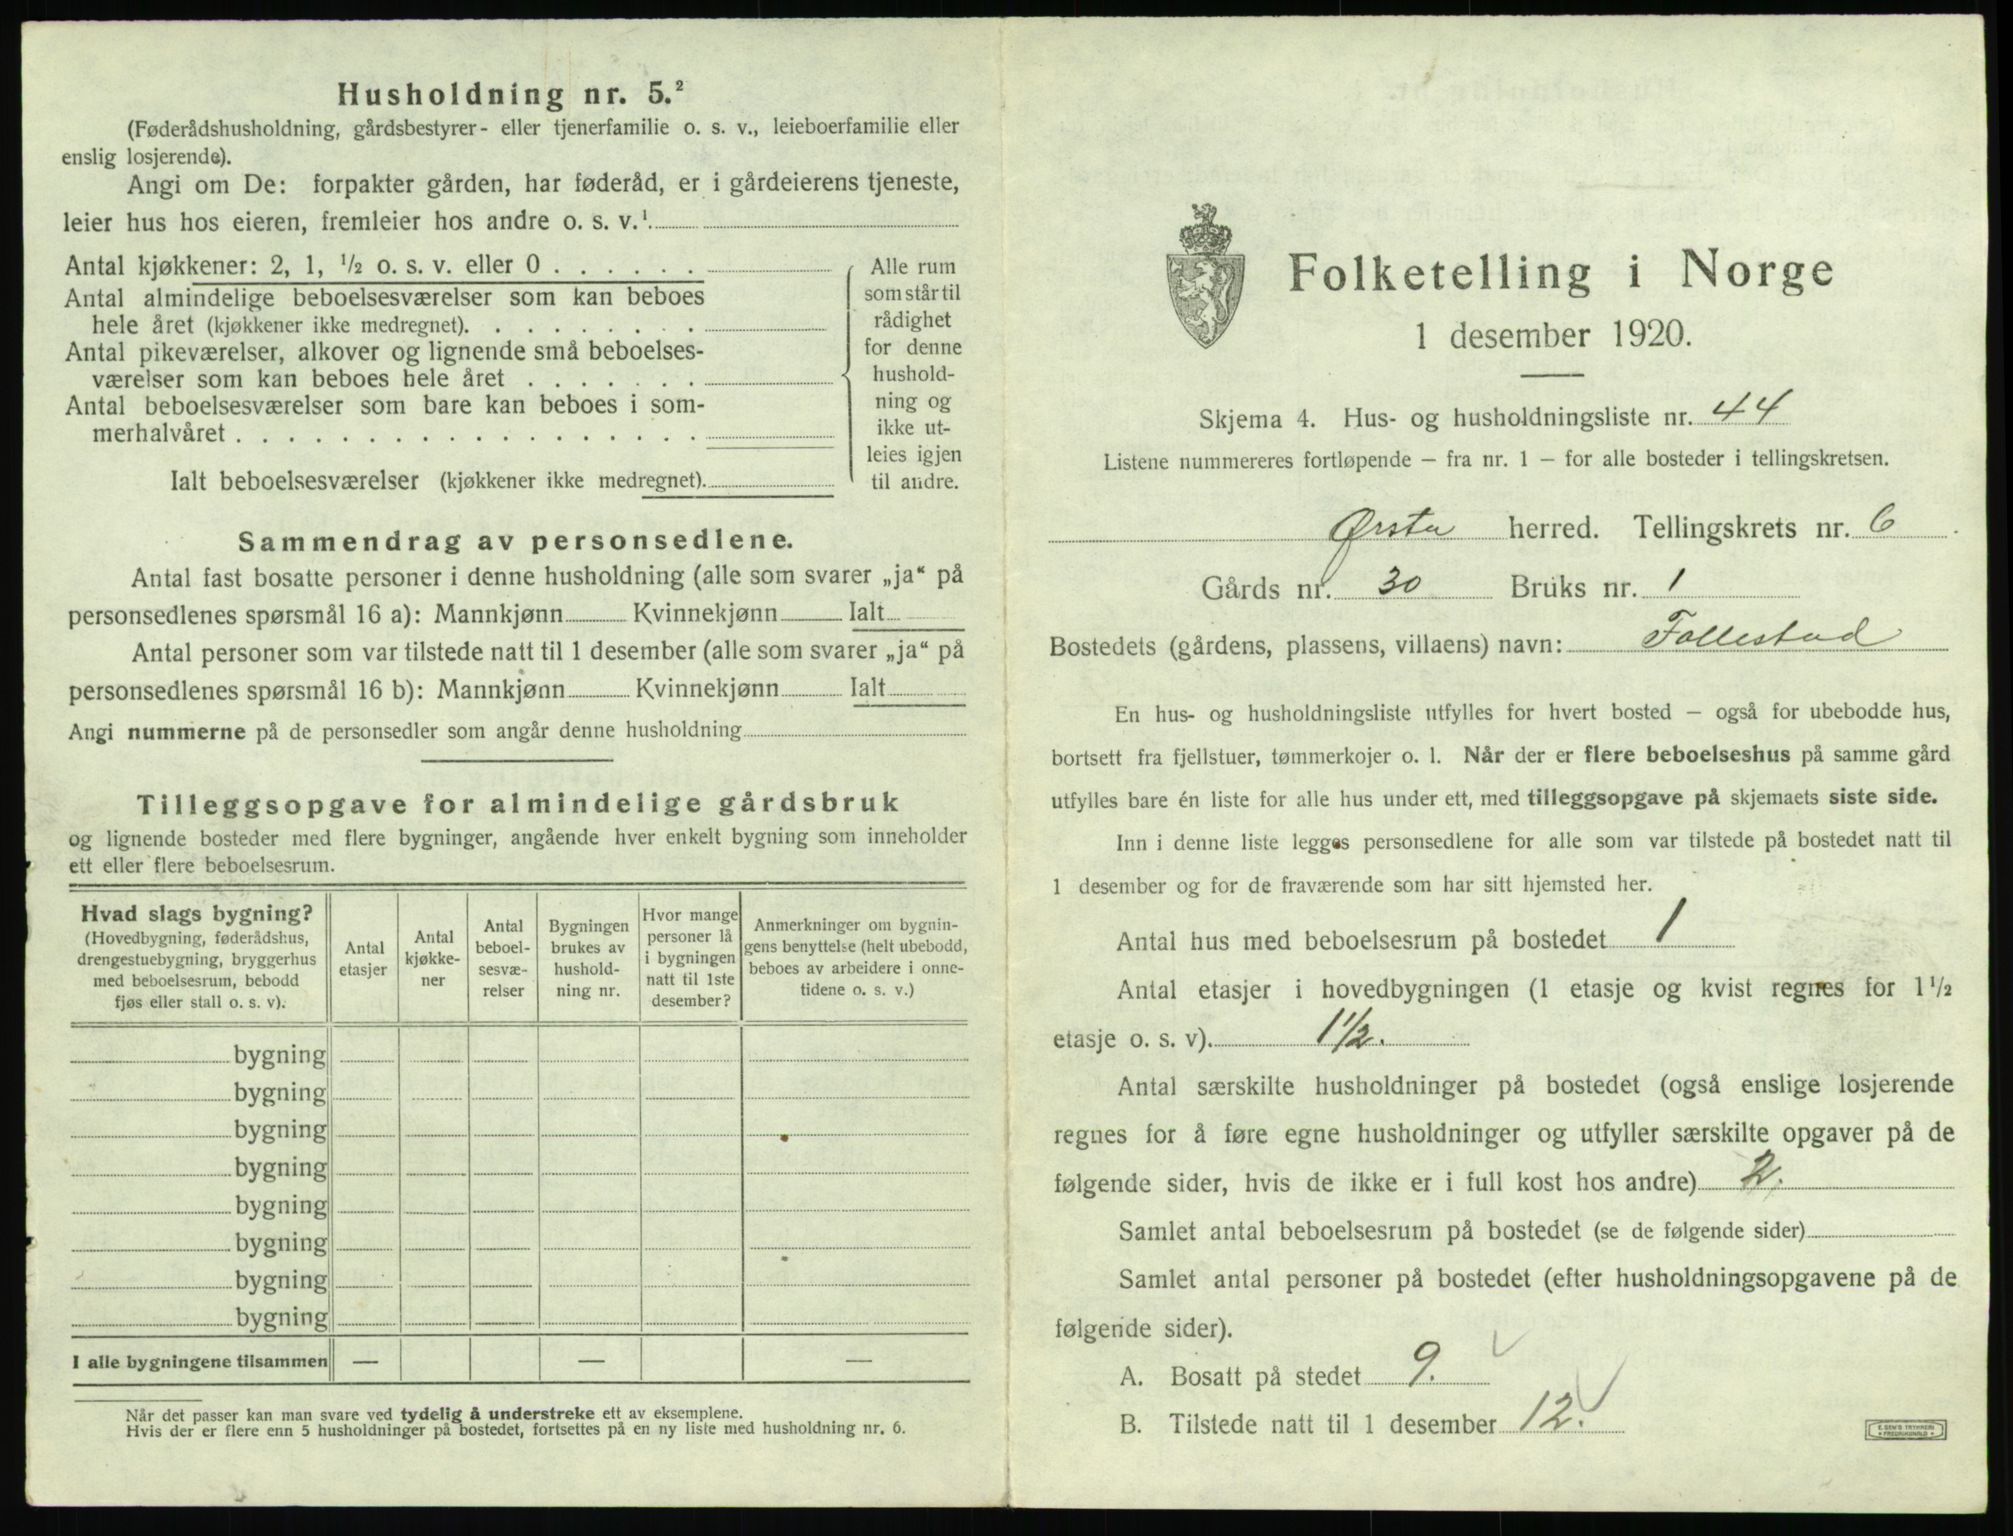 Husholdning nr. 5.²
(Føderådshusholdning, gårdsbestyrer- eller tjenerfamilie o. s. v., leieboerfamilie eller
enslig losjerende).
Angi om De: forpakter gården, har føderåd, er i gårdeierens tjeneste,
leier hus hos eieren, fremleier hos andre o. s. v.¹
Antal kjøkkener: 2, 1, ½ o. s. v. eller 0 . . . . . .
Antal almindelige beboelsesværelser som kan beboes
hele året (kjøkkener ikke medregnet). . . . . . . . .
Antal pikeværelser, alkover og lignende små beboelses-
værelser som kan beboes hele året . . . . . . .
Antal beboelsesværelser som bare kan beboes i som-
merhalvåret . . . . . . . . . . . . . . . . . .
Ialt beboelsesværelser (kjøkkener ikke medregnet).
Alle rum
som står til
rådighet
for denne
hushold-
ning og
ikke ut-
leies igjen
til andre.
Sammendrag av personsedlene.
Antal fast bosatte personer i denne husholdning (alle som svarer „ja“ på
personsedlenes spørsmål 16 a): Mannkjønn Kvinnekjønn Ialt
Antal personer som var tilstede natt til 1 desember (alle som svarer „ja“ på
personsedlenes spørsmål 16 b): Mannkjønn Kvinnekjønn Ialt
Angi nummerne på de personsedler som angår denne husholdning
Tilleggsopgave for almindelige gårdsbruk
og lignende bosteder med flere bygninger, angående hver enkelt bygning som inneholder
ett eller flere beboelsesrum.
Hvad slags bygning?
(Hovedbygning, føderådshus,
drengestuebygning, bryggerhus
med beboelsesrum, bebodd
fjøs eller stall o. s. v).
Antal
etasjer
Antal
kjøkke-
ner
Antal
beboel-
sesvæ-
relser
Bygningen
brukes av
hushold-
ning nr.
Hvor mange
personer lå
i bygningen
natt til 1ste
desember?
Anmerkninger om bygnin-
gens benyttelse (helt ubebodd,
beboes av arbeidere i onne-
tidene o. s. v.)
bygning
bygning
bygning
bygning
bygning
bygning
bygning
bygning
I alle bygningene tilsammen — — —
Når det passer kan man svare ved tydelig å understreke ett av eksemplene.
Hvis der er flere enn 5 husholdninger på bostedet, fortsettes på en ny liste med husholdning nr. 6.
Folketelling i Norge
1 desember 1920.
Skjema 4. Hus- og husholdningsliste nr. 44
Listene nummereres fortløpende – fra nr. 1 – for alle bosteder i tellingskretsen.
Ørsta herred. Tellingskrets nr. 6
Gårds nr. 30 Bruks nr. 1
Bostedets (gårdens, plassens, villaens) navn: Follestad
En hus- og husholdningsliste utfylles for hvert bosted – også for ubebodde hus,
bortsett fra fjellstuer, tømmerkojer o. l. Når der er flere beboelseshus på samme gård
utfylles bare én liste for alle hus under ett, med tilleggsopgave på skjemaets siste side.
Inn i denne liste legges personsedlene for alle som var tilstede på bostedet natt til
1 desember og for de fraværende som har sitt hjemsted her.
Antal hus med beboelsesrum på bostedet 1
Antal etasjer i hovedbygningen (1 etasje og kvist regnes for 1½
etasje o. s. v). 1½.
Antal særskilte husholdninger på bostedet (også enslige losjerende
regnes for å føre egne husholdninger og utfyller særskilte opgaver på de
følgende sider, hvis de ikke er i full kost hos andre) 2.
Samlet antal beboelsesrum på bostedet (se de følgende sider)
Samlet antal personer på bostedet (efter husholdningsopgavene på de
følgende sider).
A. Bosatt på stedet 9. ✓
B. Tilstede natt til 1 desember 12. ✓
E. SEM'S TRYKKERI
FREDRIKSHALD